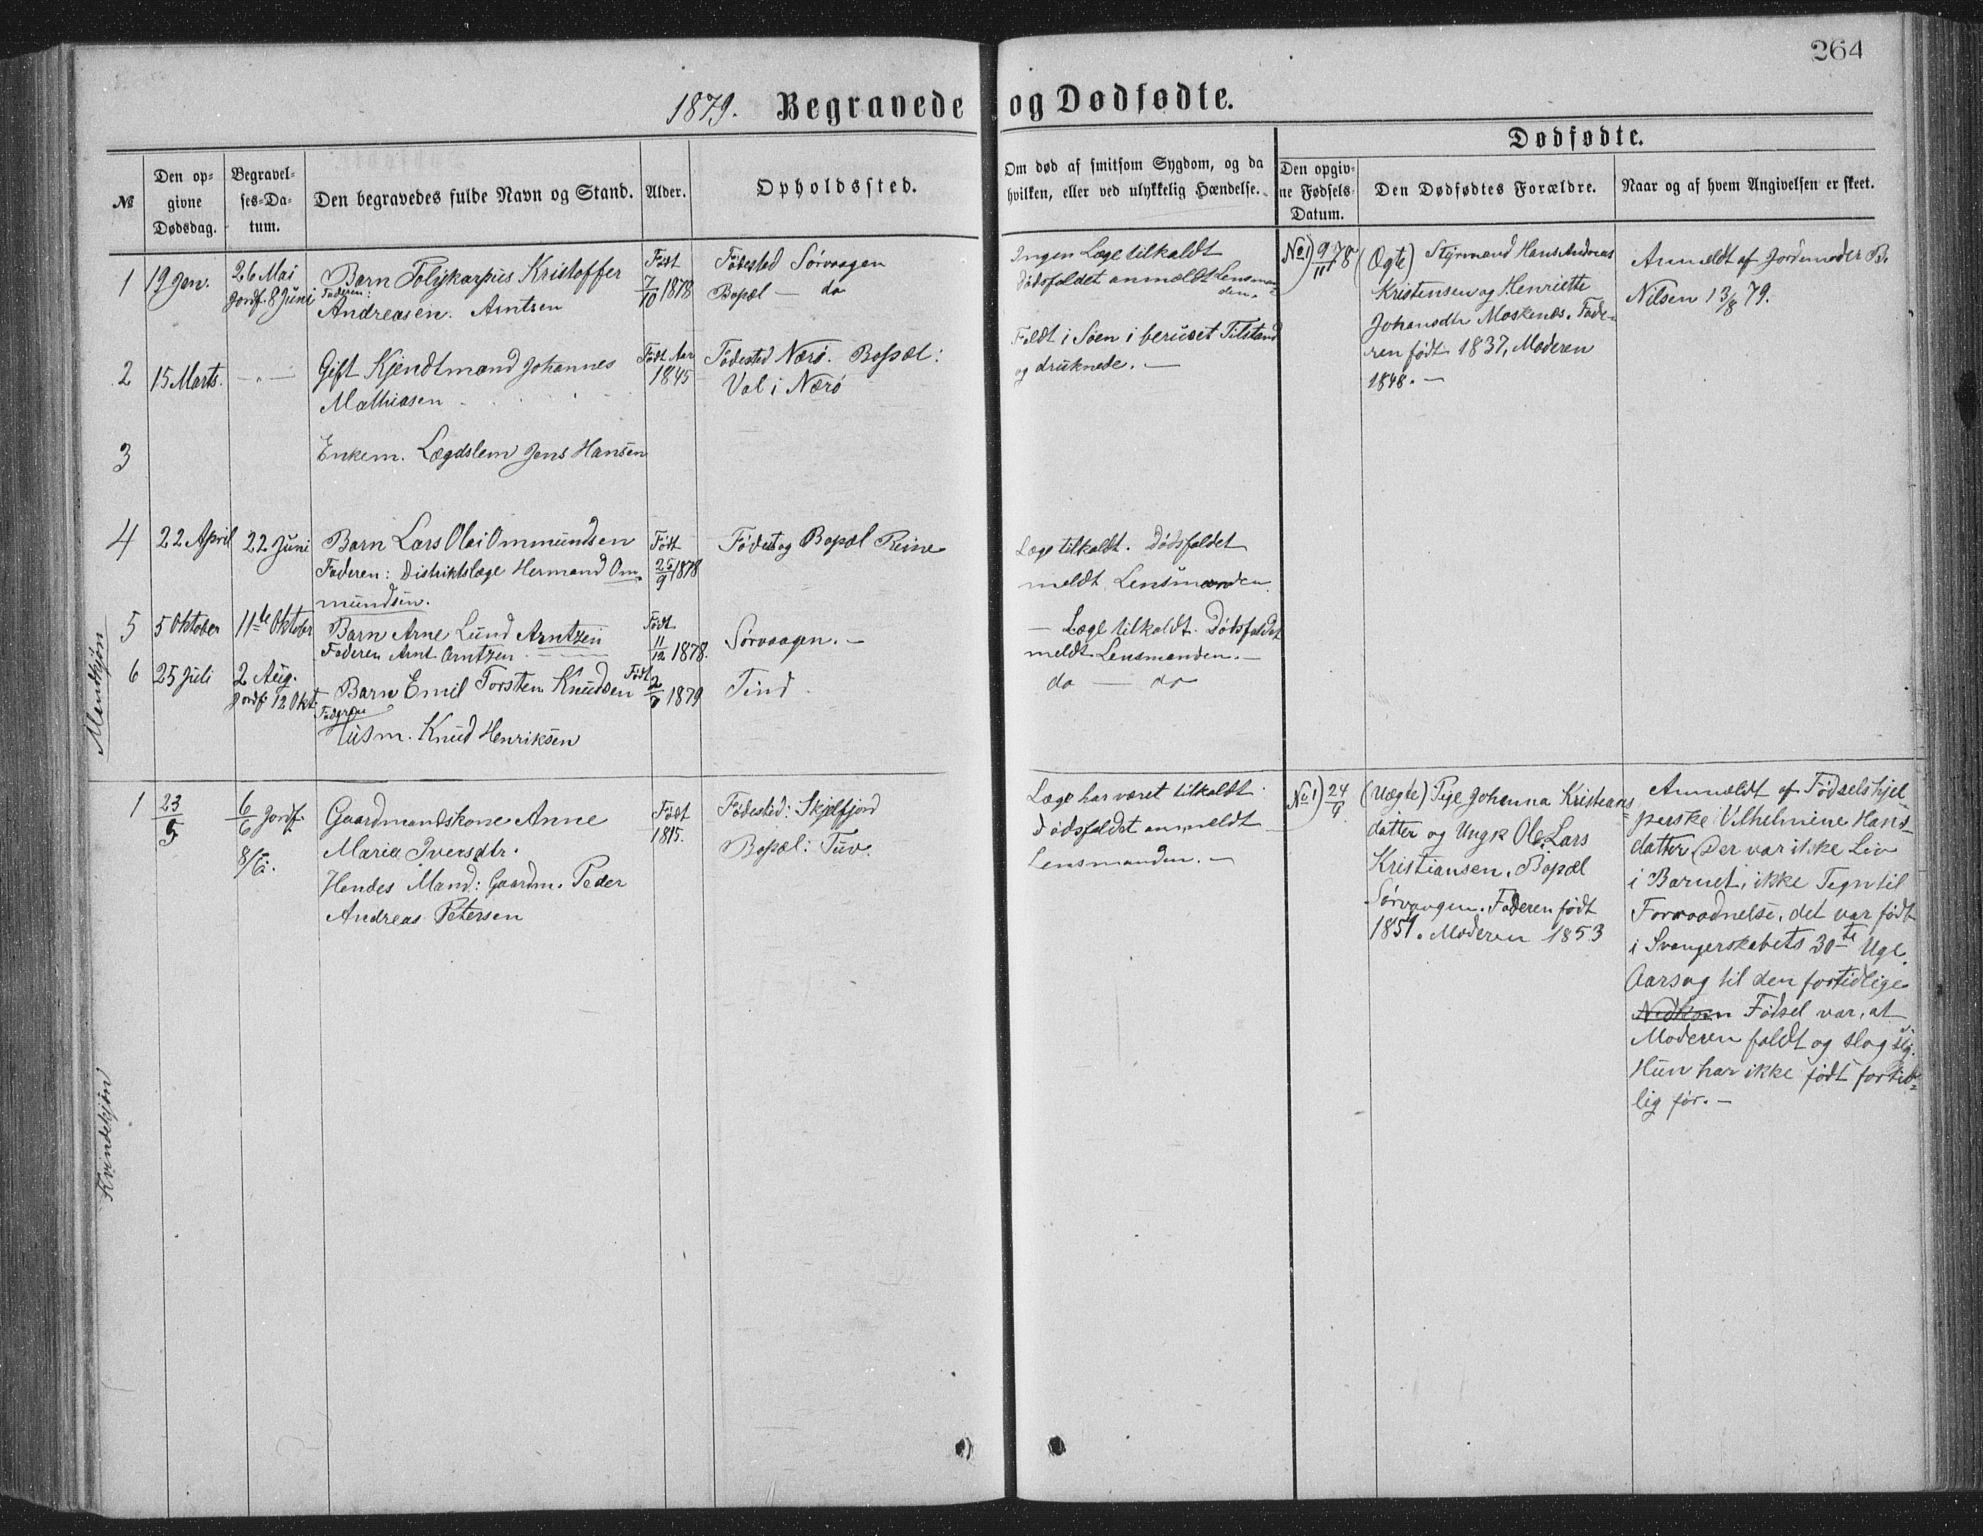 264
1879. Begravede og Dødfødte.
Dødfødte.
№
Den op-
givne
Dødsdag.
Begravel-
ses-Da-
tum.
Den begravedes fulde Navn og Stand.
Alder.
Opholdssted.
Om død af smitsom Sygdom, og da
hvilken, eller ved ulykkelig Hændelse.
Den opgiv-
ne Fødsels-
Datum.
Den Dødfødtes Forældre.
Naar og af hvem Angivelsen er skeet.
Mandkjøn
1
19 Jan.
26 Mai
Jordf. 8 Juni
Barn Polykarpus Kristoffer
Faderen:
Andreasen. Arntzen
Født
7/10 1878
Fødested Sørvaagen
Bopæl — do
Ingen Læge tilkaldt
Dødsfaldet anmældt Lensman-
den.
2
15 Marts.
— " —
Gift Kjendtmand Johannes
Mathiasen
Født Aar
1845
Fødested Nærø. Bopæl:
Val i Nærø
Faldt i Søen i beruset Tilstand
og druknede. —
3
Enkem. Lægdslem Jens Hansen
4
22 April
22 Juni
Barn Lars Olai Ommundsen
Faderen: Distriktslæge Hermand Om-
mundsen.
Født
25/9 1878
Fødest og Bopæl Reine
Læge tilkaldt. Dødsfaldet
meldt Lensmanden
5
5 Oktober
11te Oktober
Barn Arne Lund Arntzen
Faderen Arnt Arntzen
Født
11/12 1878.
Sørvaagen. —
— Læge tilkaldt. Dødsfaldet
meldt Lensmanden. —
6
25 Juli
2 Aug.
Jordf. 12 Okt.
Barn Emil Torsten Knudsen
Faderen
Husm. Knud Henriksen
Født
1879
Tind.
do — do
No 1) 9/11 78
(Ægte) Styrmand Hans Andreas
Kristensen og Henriette
Johansdtr Moskenæs. Fade-
ren født 1837, Moderen
1848. —
Anmeldt af Jordemoder B.
Nilsen 13/8 79.
Kvindekjøn
1
23/5
6/6 Jordf.
8/6.
Gaardmandskone Anne
Maria Iversdtr.
Hendes Mand: Gaardm. Peder
Andreas Petersen
Født
1815.
Fødested: Skjelfjord
Bopæl: Tuv.
Læge har været tilkaldt.
Dødsfaldet anmeldt
Lensmanden. —
No 1) 24/9
(Uægte) Pige Johanna Kristians-
datter og Ungk Ole Lars
Kristiansen. Bopæl
Sørvaagen. Faderen født
1851. Moderen 1853
Anmeldt af Fødselshjel-
perske Vilhelmine Hans-
datter Der var ikke Liv
i Barnet, ikke Tegn til
Forraadnelse, det var født
i Svangerskabets 30te Uge.
Aarsag til den fortidlige
Fødsel var, at
Moderen faldt og slog sig.
Hun har ikke født fortid-
lig før. —